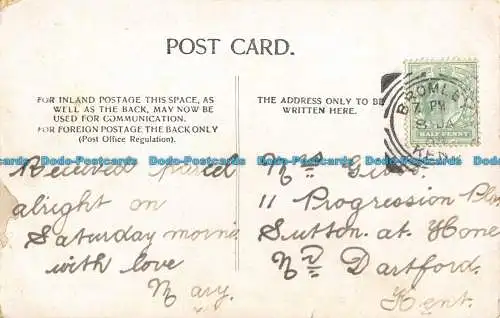 POST CARD.
FOR INLAND POSTAGE THIS SPACE, AS
WELL AS THE BACK, MAY NOW BE
USED FOR COMMUNICATION.
FOR FOREIGN POSTAGE THE BACK ONLY
(Post Office Regulation).
THE ADDRESS ONLY TO BE
WRITTEN HERE.
BROMLEY
PM
KENT
HALF PENNY
Dodo-Postcards Dodo-Postcards Dodo-Postcards Dodo-Postcards Dodo-Postcards
Received parcel
alright on
Saturday morni
with love
Mary.
Mrs
11 Progression Pla
Sutton. at. Hone
Nr Dartford.
Kent.